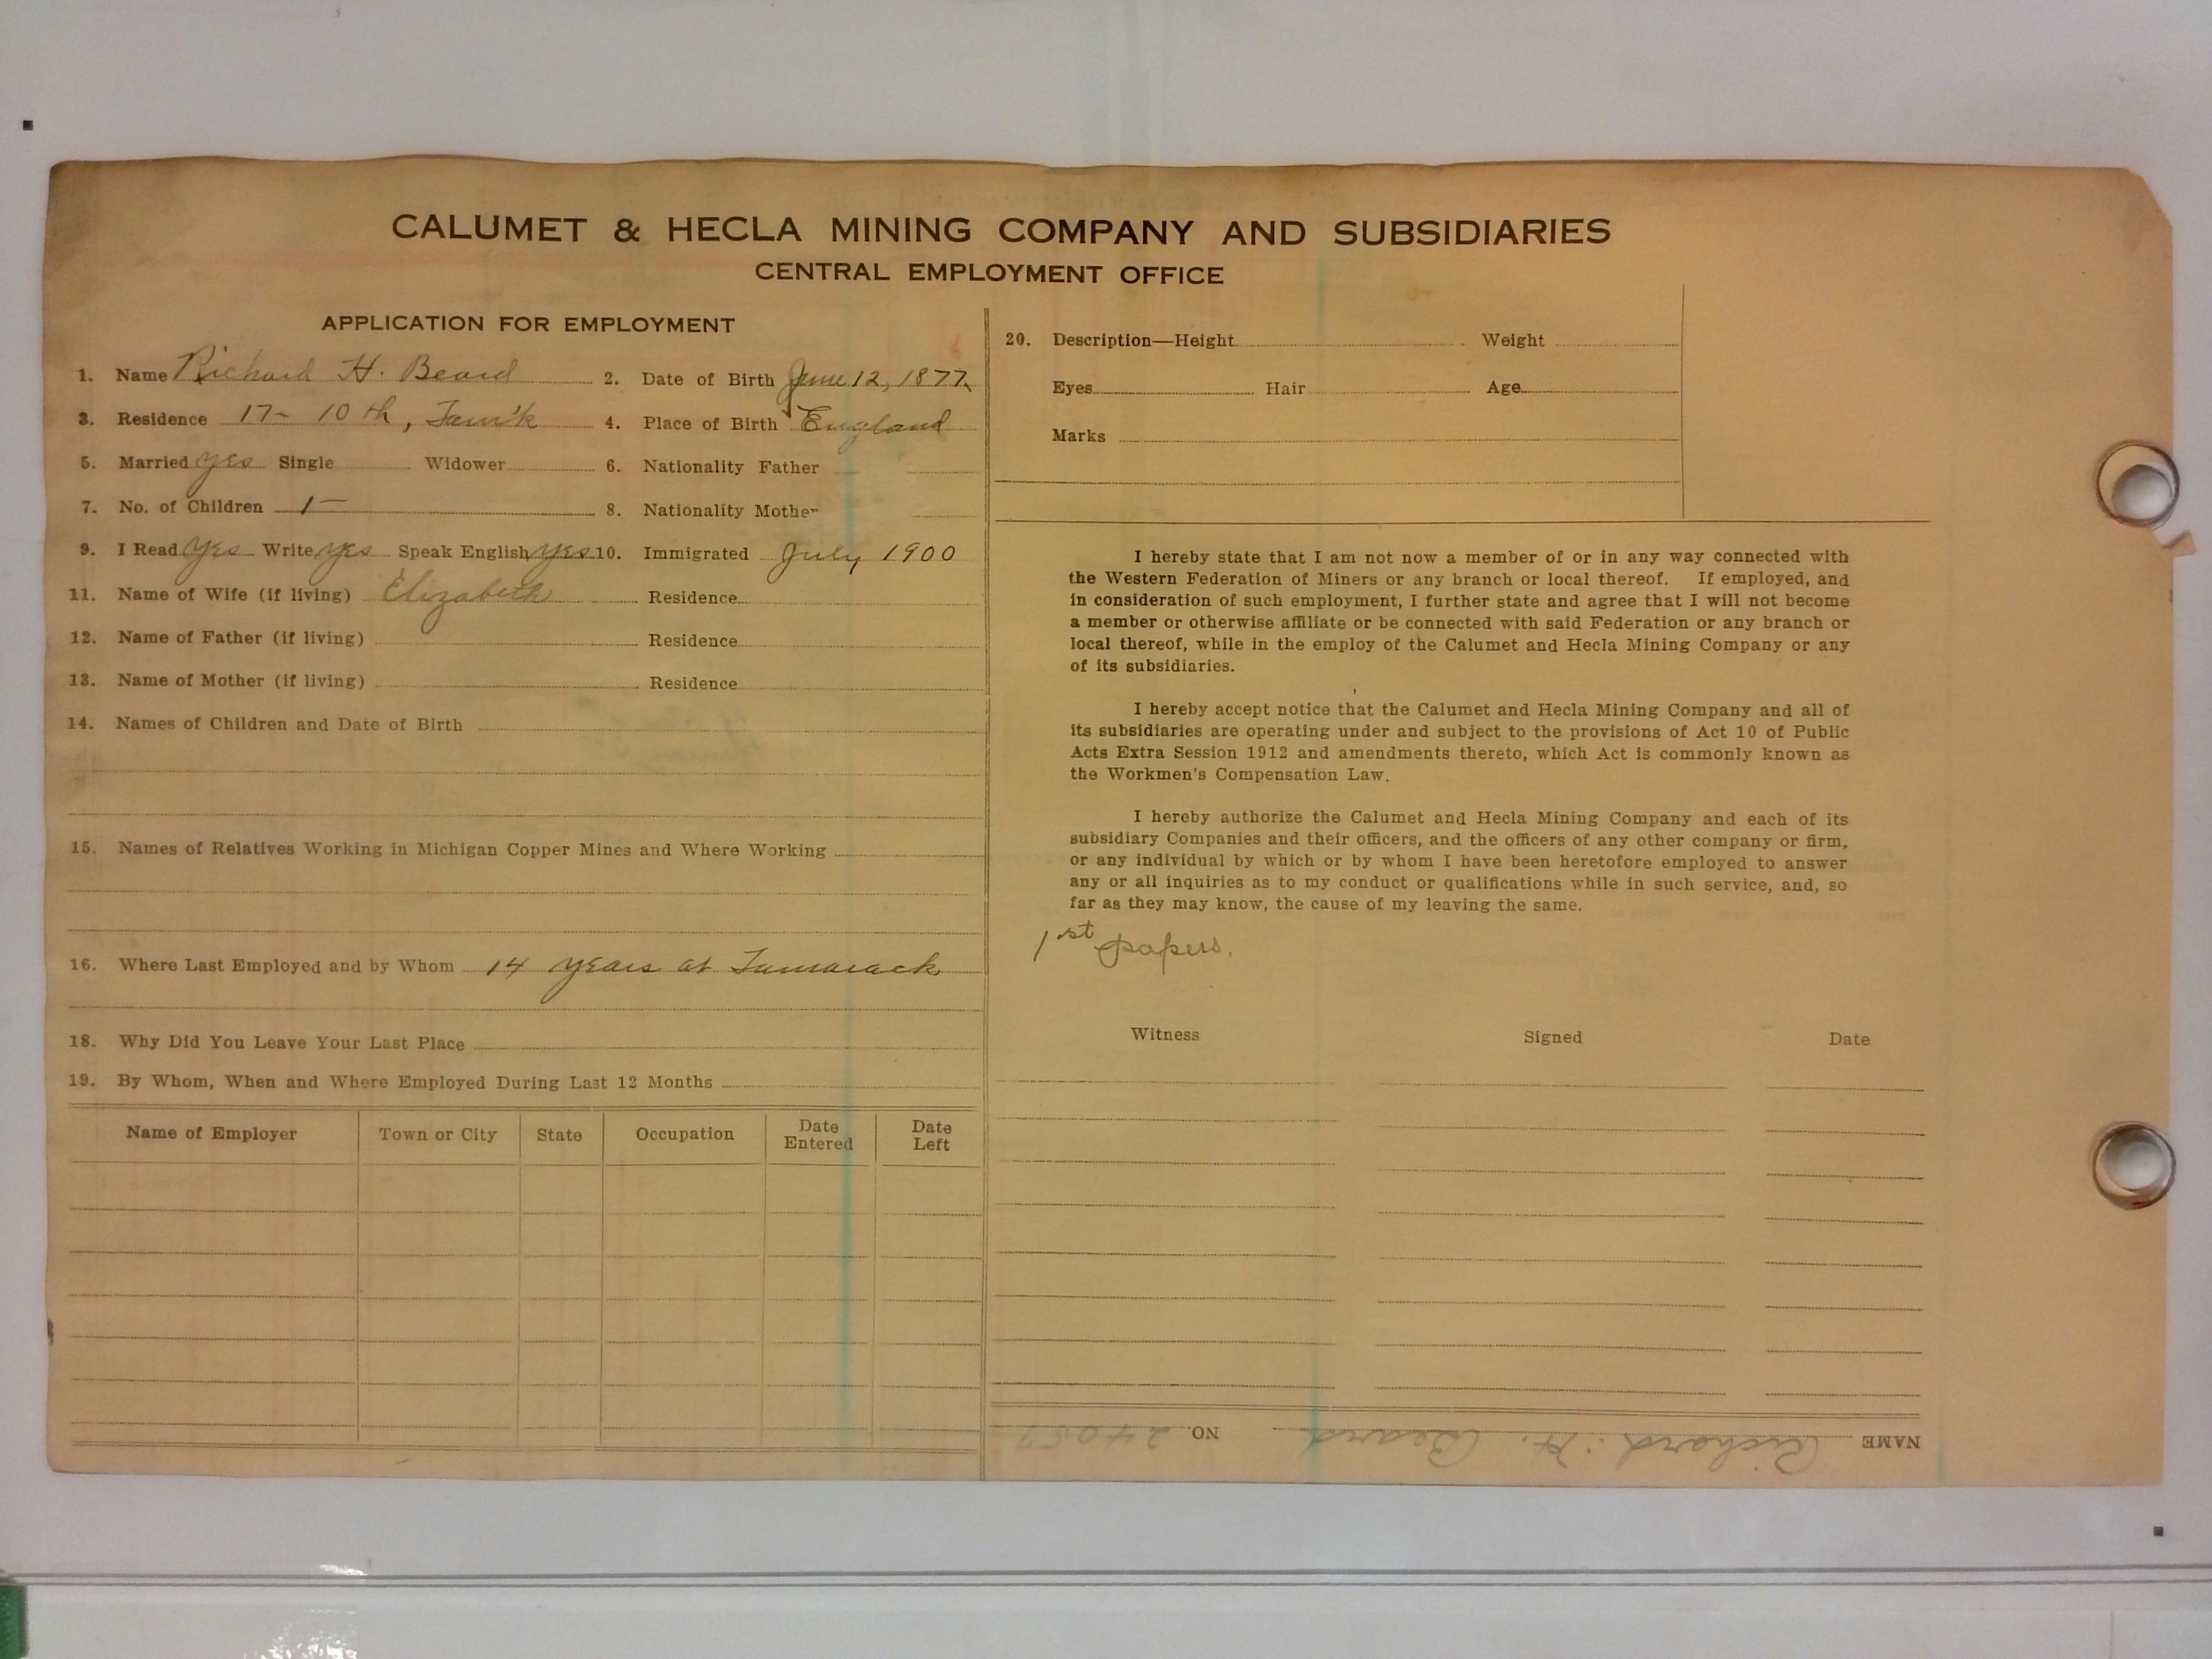 CALUMET & HECLA MINING COMPANY AND SUBSIDIARIES
CENTRAL EMPLOYMENT OFFICE
APPLICATION FOR EMPLOYMENT
1. Name Richard H. Beard 2. Date of Birth June 12, 1877
3. Residence 17- 10th, Tam'k 4. Place of Birth England
5. Married yes Single Widower 6. Nationality Father
7. No. of Children 1- 8. Nationality Mother
9. I Read yes Write yes Speak English yes 10. Immigrated July 1900
11. Name of Wife (if living) Elizabeth Residence
12. Name of Father (if living) Residence
13. Name of Mother (if living) Residence
14. Names of Children and Date of Birth
15. Names of Relatives Working in Michigan Copper Mines and Where Working
16. Where Last Employed and by Whom 14 years at Tamarack
18. Why Did You Leave Your Last Place
19. By Whom, When and Where Employed During Last 12 Months
Name of Employer Town or City State Occupation Date Entered Date Left
20. Description—Height Weight
Eyes Hair Age
Marks
I hereby state that I am not now a member of or in any way connected with
the Western Federation of Miners or any branch or local thereof. If employed, and
in consideration of such employment, I further state and agree that I will not become
a member or otherwise affiliate or be connected with said Federation or any branch or
local thereof, while in the employ of the Calumet and Hecla Mining Company or any
of its subsidiaries.
I hereby accept notice that the Calumet and Hecla Mining Company and all of
its subsidiaries are operating under and subject to the provisions of Act 10 of Public
Acts Extra Session 1912 and amendments thereto, which Act is commonly known as
the Workmen's Compensation Law.
I hereby authorize the Calumet and Hecla Mining Company and each of its
subsidiary Companies and their officers, and the officers of any other company or firm,
or any individual by which or by whom I have been heretofore employed to answer
any or all inquiries as to my conduct or qualifications while in such service, and, so
far as they may know, the cause of my leaving the same.
1st papers.
Witness Signed Date
NAME Richard. H. Beard NO. 24057